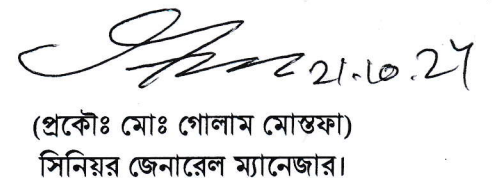 21.10.24
(প্রকৌঃ মোঃ গোলাম মোস্তফা)
সিনিয়র জেনারেল ম্যানেজার।